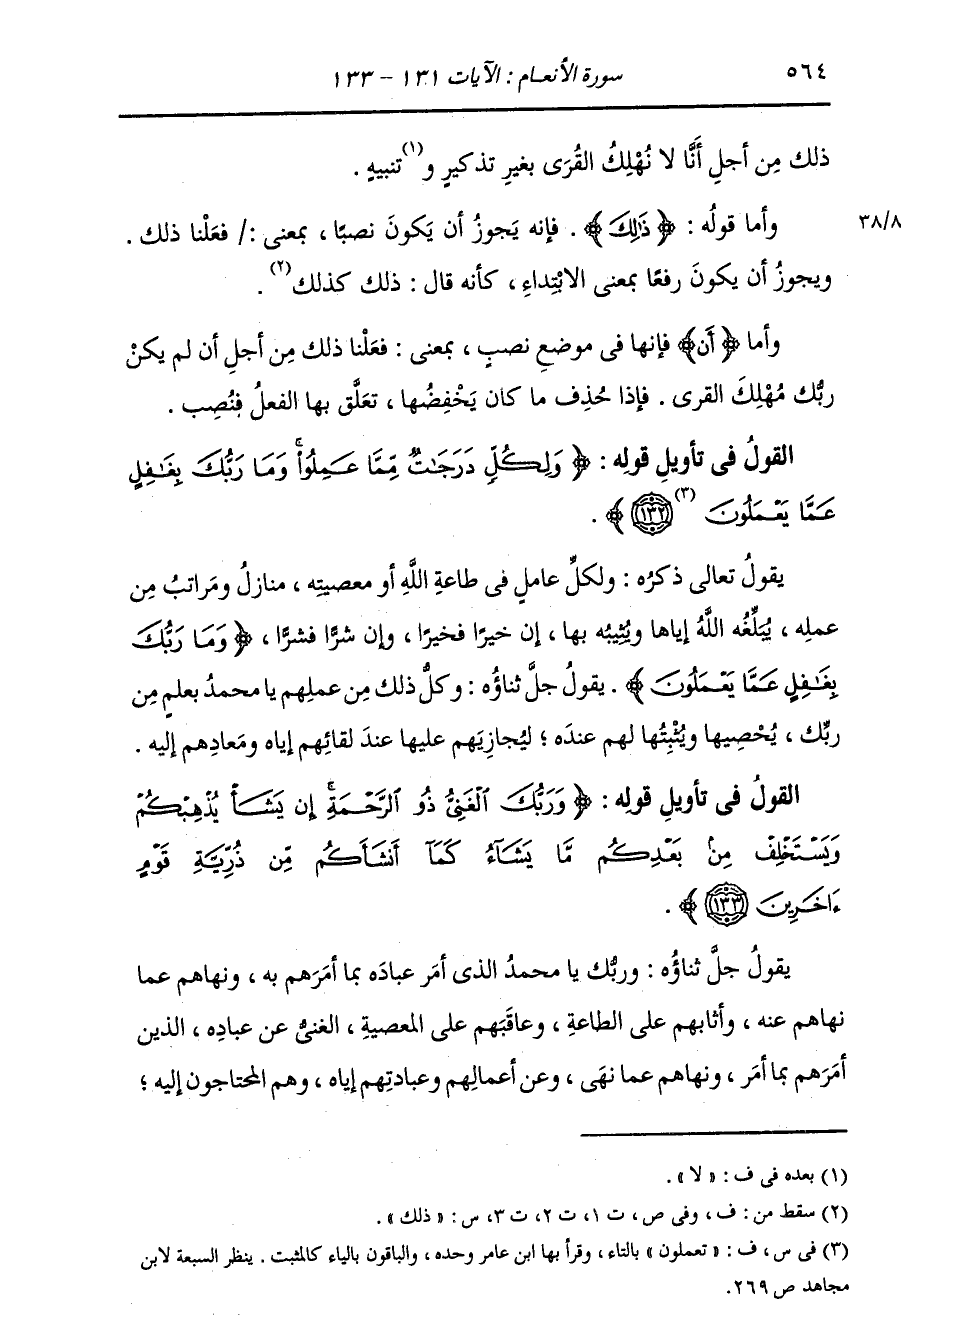 ٥٦٤ سورة الأنعام : الآيات ١٣١ - ١٣٣
ذلك مِن أجلِ أنَّا لا نُهْلِكُ القُرَى بغيرِ تذكيرٍ و(١)تنبيهٍ .
٣٨/٨ وأما قولُه : ﴿ ذَٰلِكَ ﴾ . فإنه يَجوزُ أن يَكونَ نصبًا ، بمعنى :/ فعَلْنا ذلك .
ويجوزُ أن يكونَ رفعًا بمعنى الابْتِداءِ ، كأنه قال : ذلك كذلك(٢) .
وأما ﴿ أَن ﴾ فإنها فى موضعِ نصبٍ ، بمعنى : فعَلْنا ذلك مِن أجلِ أن لم يكنْ
ربُّك مُهْلِكَ القرى . فإذا حُذِف ما كان يَخْفِضُها ، تعَلَّق بها الفعلُ فنُصِب .
القولُ فى تأويلِ قولِه : ﴿ وَلِكُلٍّ دَرَجَٰتٌ مِّمَّا عَمِلُوا۟ ۚ وَمَا رَبُّكَ بِغَٰفِلٍ
عَمَّا يَعْمَلُونَ (٣) ١٣٢ ﴾ .
يقولُ تعالى ذكرُه : ولكلِّ عاملٍ فى طاعةِ اللَّهِ أو معصيتِه ، منازلُ ومَراتبُ مِن
عملِه ، يُبَلِّغُه اللَّهُ إياها ويُثِيبُه بها ، إن خيرًا فخيرا ، وإن شرًّا فشرًّا ، ﴿ وَمَا رَبُّكَ
بِغَٰفِلٍ عَمَّا يَعْمَلُونَ ﴾ . يقولُ جلَّ ثناؤُه : وكلُّ ذلك مِن عملِهم يا محمدُ بعلمٍ مِن
ربِّك ، يُحْصِيها ويُثْبِتُها لهم عندَه ؛ ليُجازِيَهم عليها عندَ لقائِهم إياه ومَعادِهم إليه .
القولُ فى تأويلِ قولِه : ﴿ وَرَبُّكَ ٱلْغَنِىُّ ذُو ٱلرَّحْمَةِ ۚ إِن يَشَأْ يُذْهِبْكُمْ
وَيَسْتَخْلِفْ مِنۢ بَعْدِكُم مَّا يَشَآءُ كَمَآ أَنشَأَكُم مِّن ذُرِّيَّةِ قَوْمٍ
ءَاخَرِينَ ١٣٣ ﴾ .
يقولُ جلَّ ثناؤُه : وربُّك يا محمدُ الذى أمَر عبادَه بما أمَرَهم به ، ونهاهم عما
نهاهم عنه ، وأثابهم على الطاعةِ ، وعاقَبَهم على المعصيةِ ، الغنىُّ عن عبادِه ، الذين
أمَرَهم بما أمَر ، ونهاهم عما نهَى ، وعن أعمالِهم وعبادتِهم إياه ، وهم المحتاجون إليه ؛
(١) بعده فى ف : « لا » .
(٢) سقط من : ف ، وفى ص ، ت ١، ت ٢، ت ٣، س : « ذلك » .
(٣) فى س ، ف : « تعملون » بالتاء ، وقرأ بها ابن عامر وحده ، والباقون بالياء كالمثبت . ينظر السبعة لابن
مجاهد ص ٢٦٩.